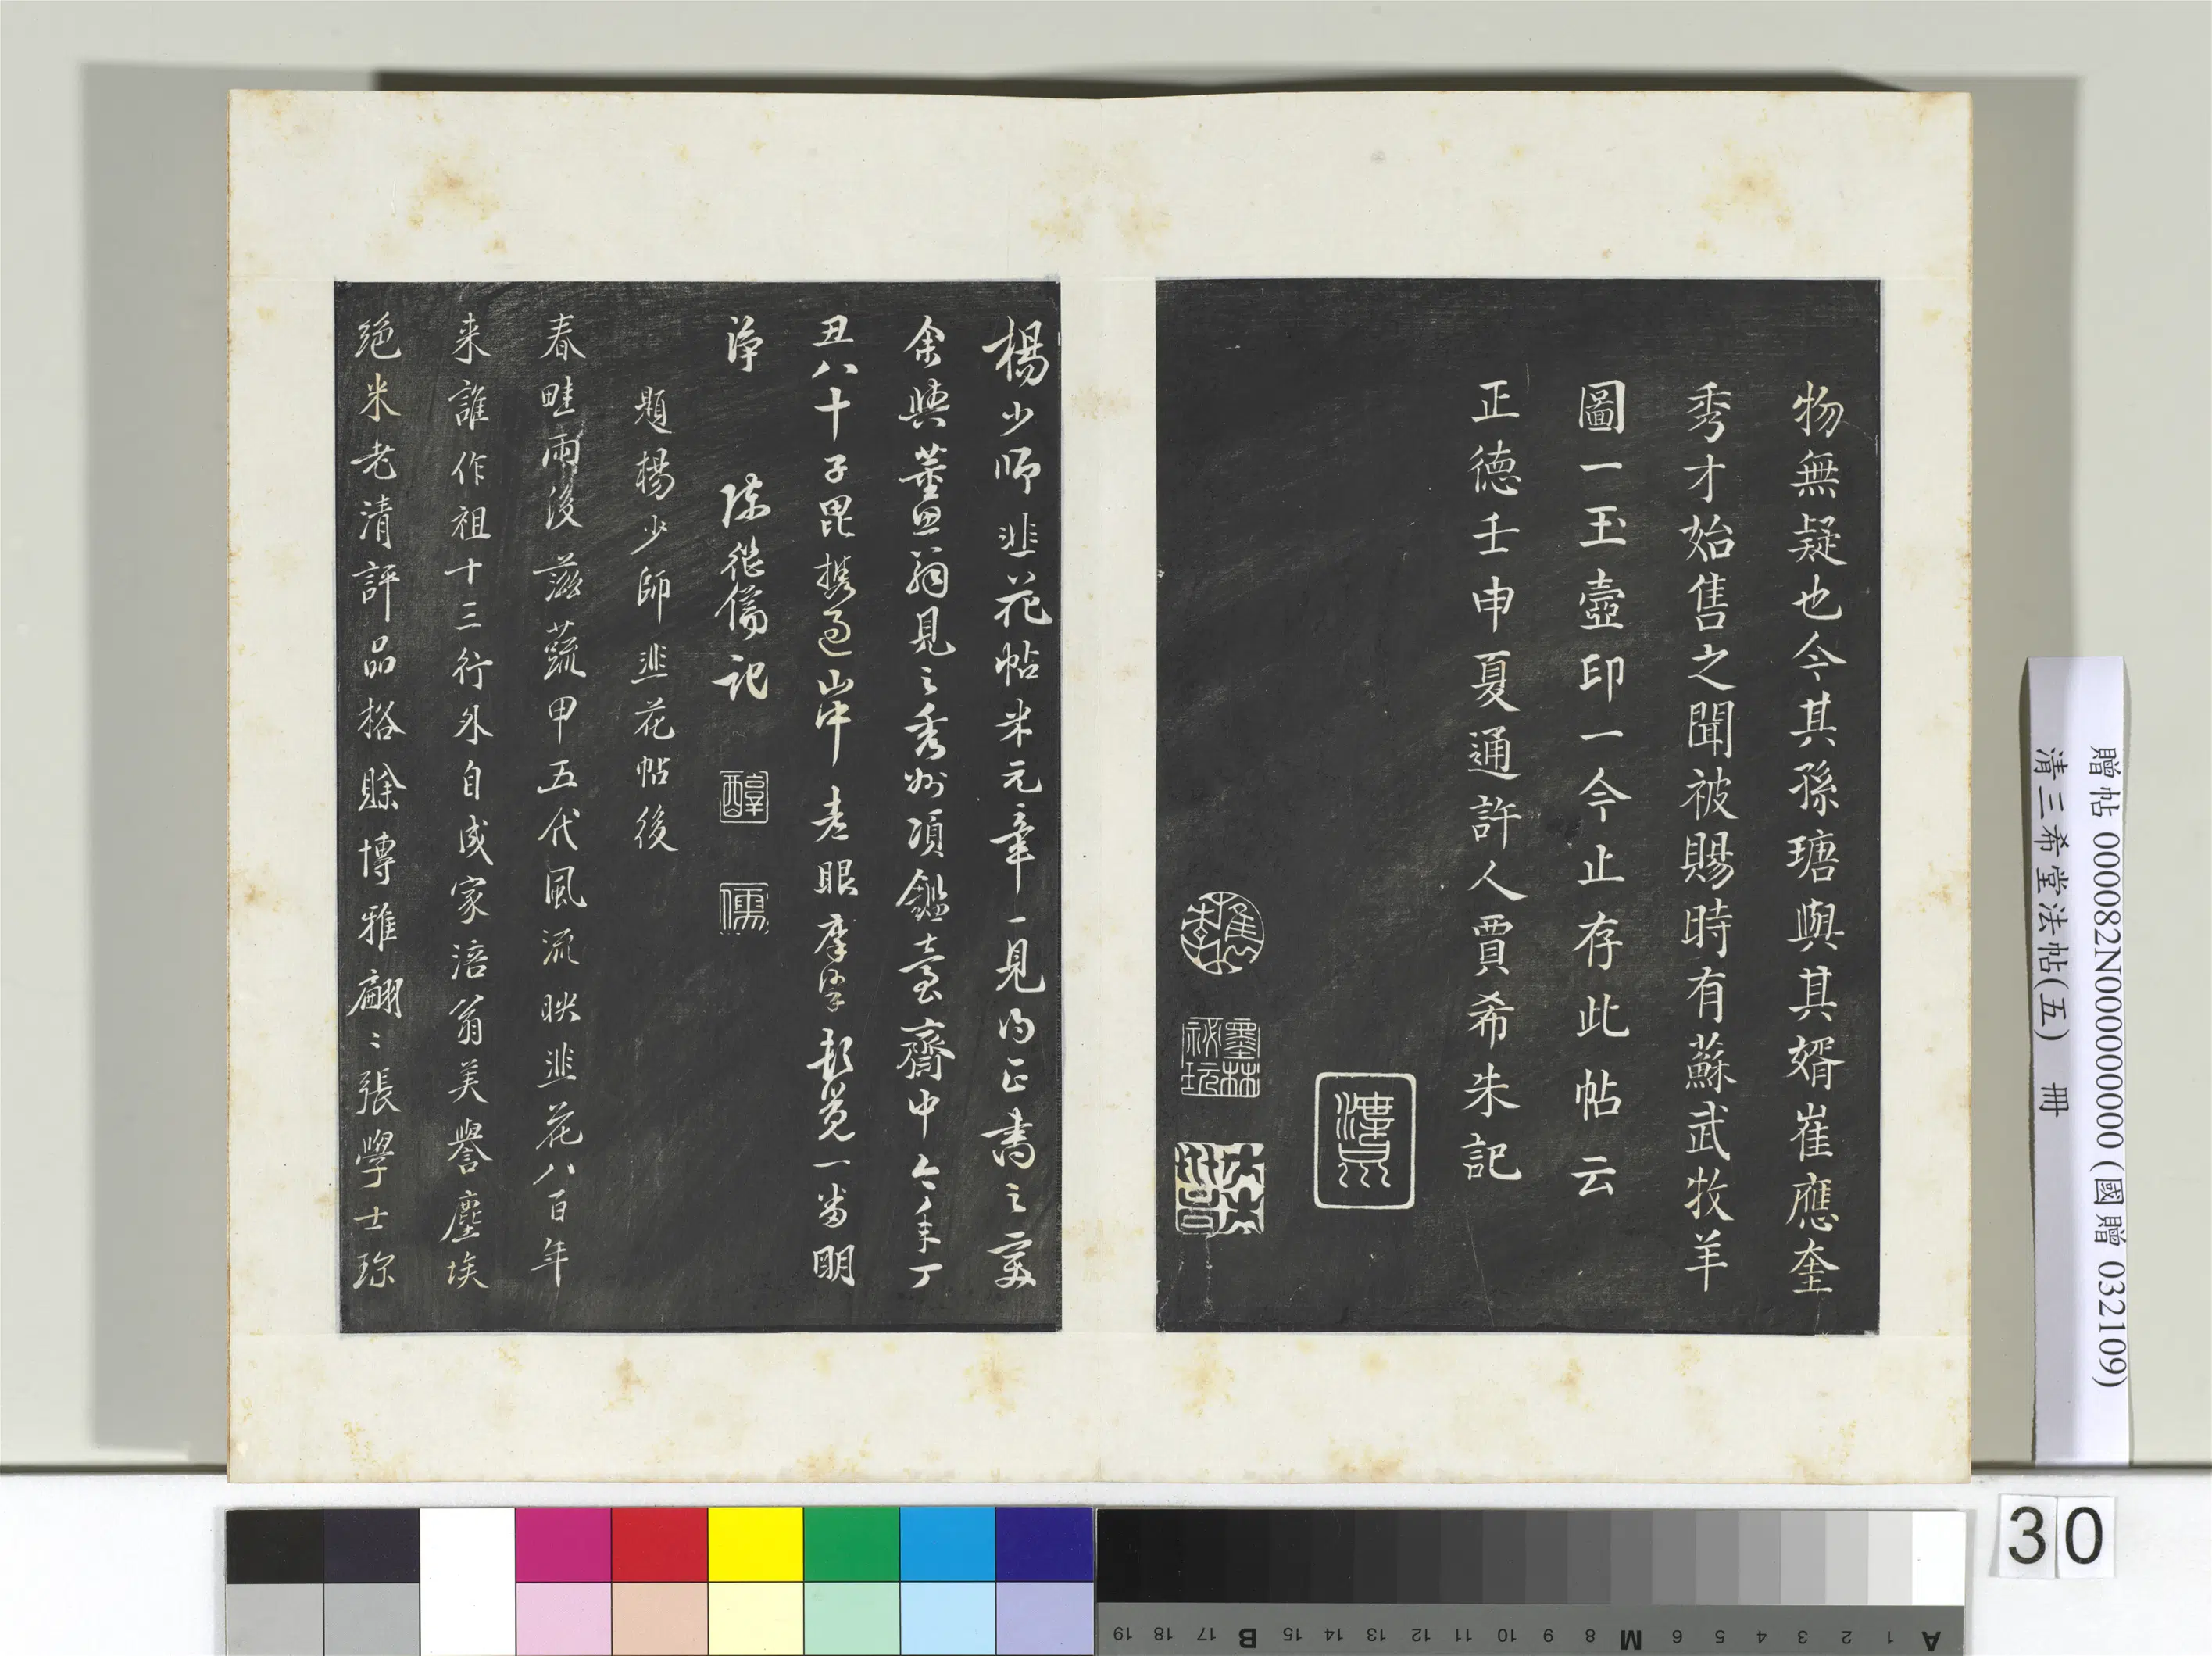 物無疑也今其孫瑭與其婿崔應奎
秀才始售之聞被賜時有蘇武牧羊
圖一玉壺印一今止存此帖云
正德壬申夏通許人賈希朱記
楊少師韭花帖米元章一見為正書之變
余與董思翁見之秀州項鑑臺齋中今年丁
丑八十子毘攜過山中老眼摩挲頓覺一番明
淨 陳繼儒記
醇
儒
題楊少師韭花帖後
春畦雨後茲蔬甲五代風流映韭花八百年
来誰作祖十三行外自成家涪翁美譽塵埃
絕米老清評品格賒博雅翩〻張學士珎
贈帖 000082N000000000 (國贈 032109)
清三希堂法帖(五) 冊
30
A 1 2 3 4 5 6 M 8 9 10 11 12 13 14 15 B 17 18 19